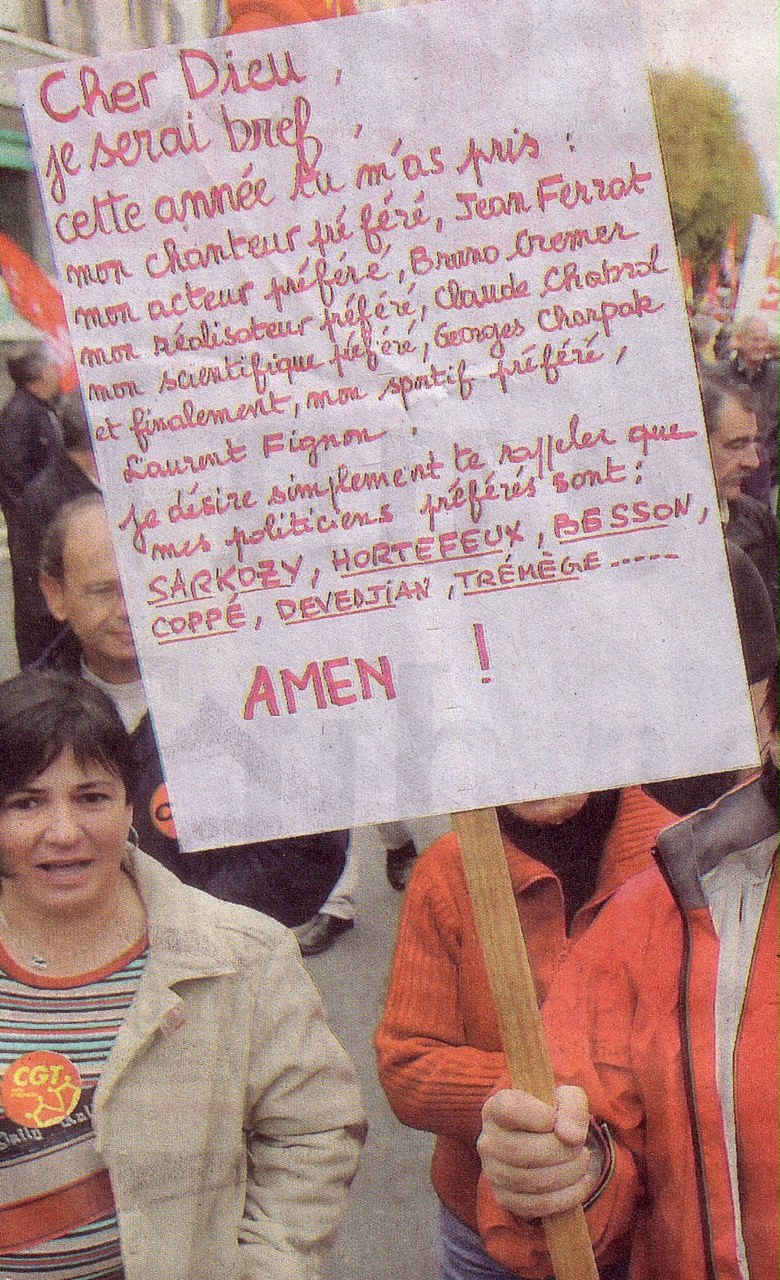 Cher Dieu,
je serai bref,
cette année tu m'as pris :
mon chanteur préféré, Jean Ferrat
mon acteur préféré, Bruno Cremer
mon réalisateur préféré, Claude Chabrol
mon scientifique préféré, Georges Charpak
et finalement, mon sportif préféré,
Laurent Fignon.
je désire simplement te rappeler que
mes politiciens préférés sont :
SARKOZY, HORTEFEUX, BESSON,
COPPÉ, DEVEDJIAN, TRÉMÈGE.....
AMEN !
CGT